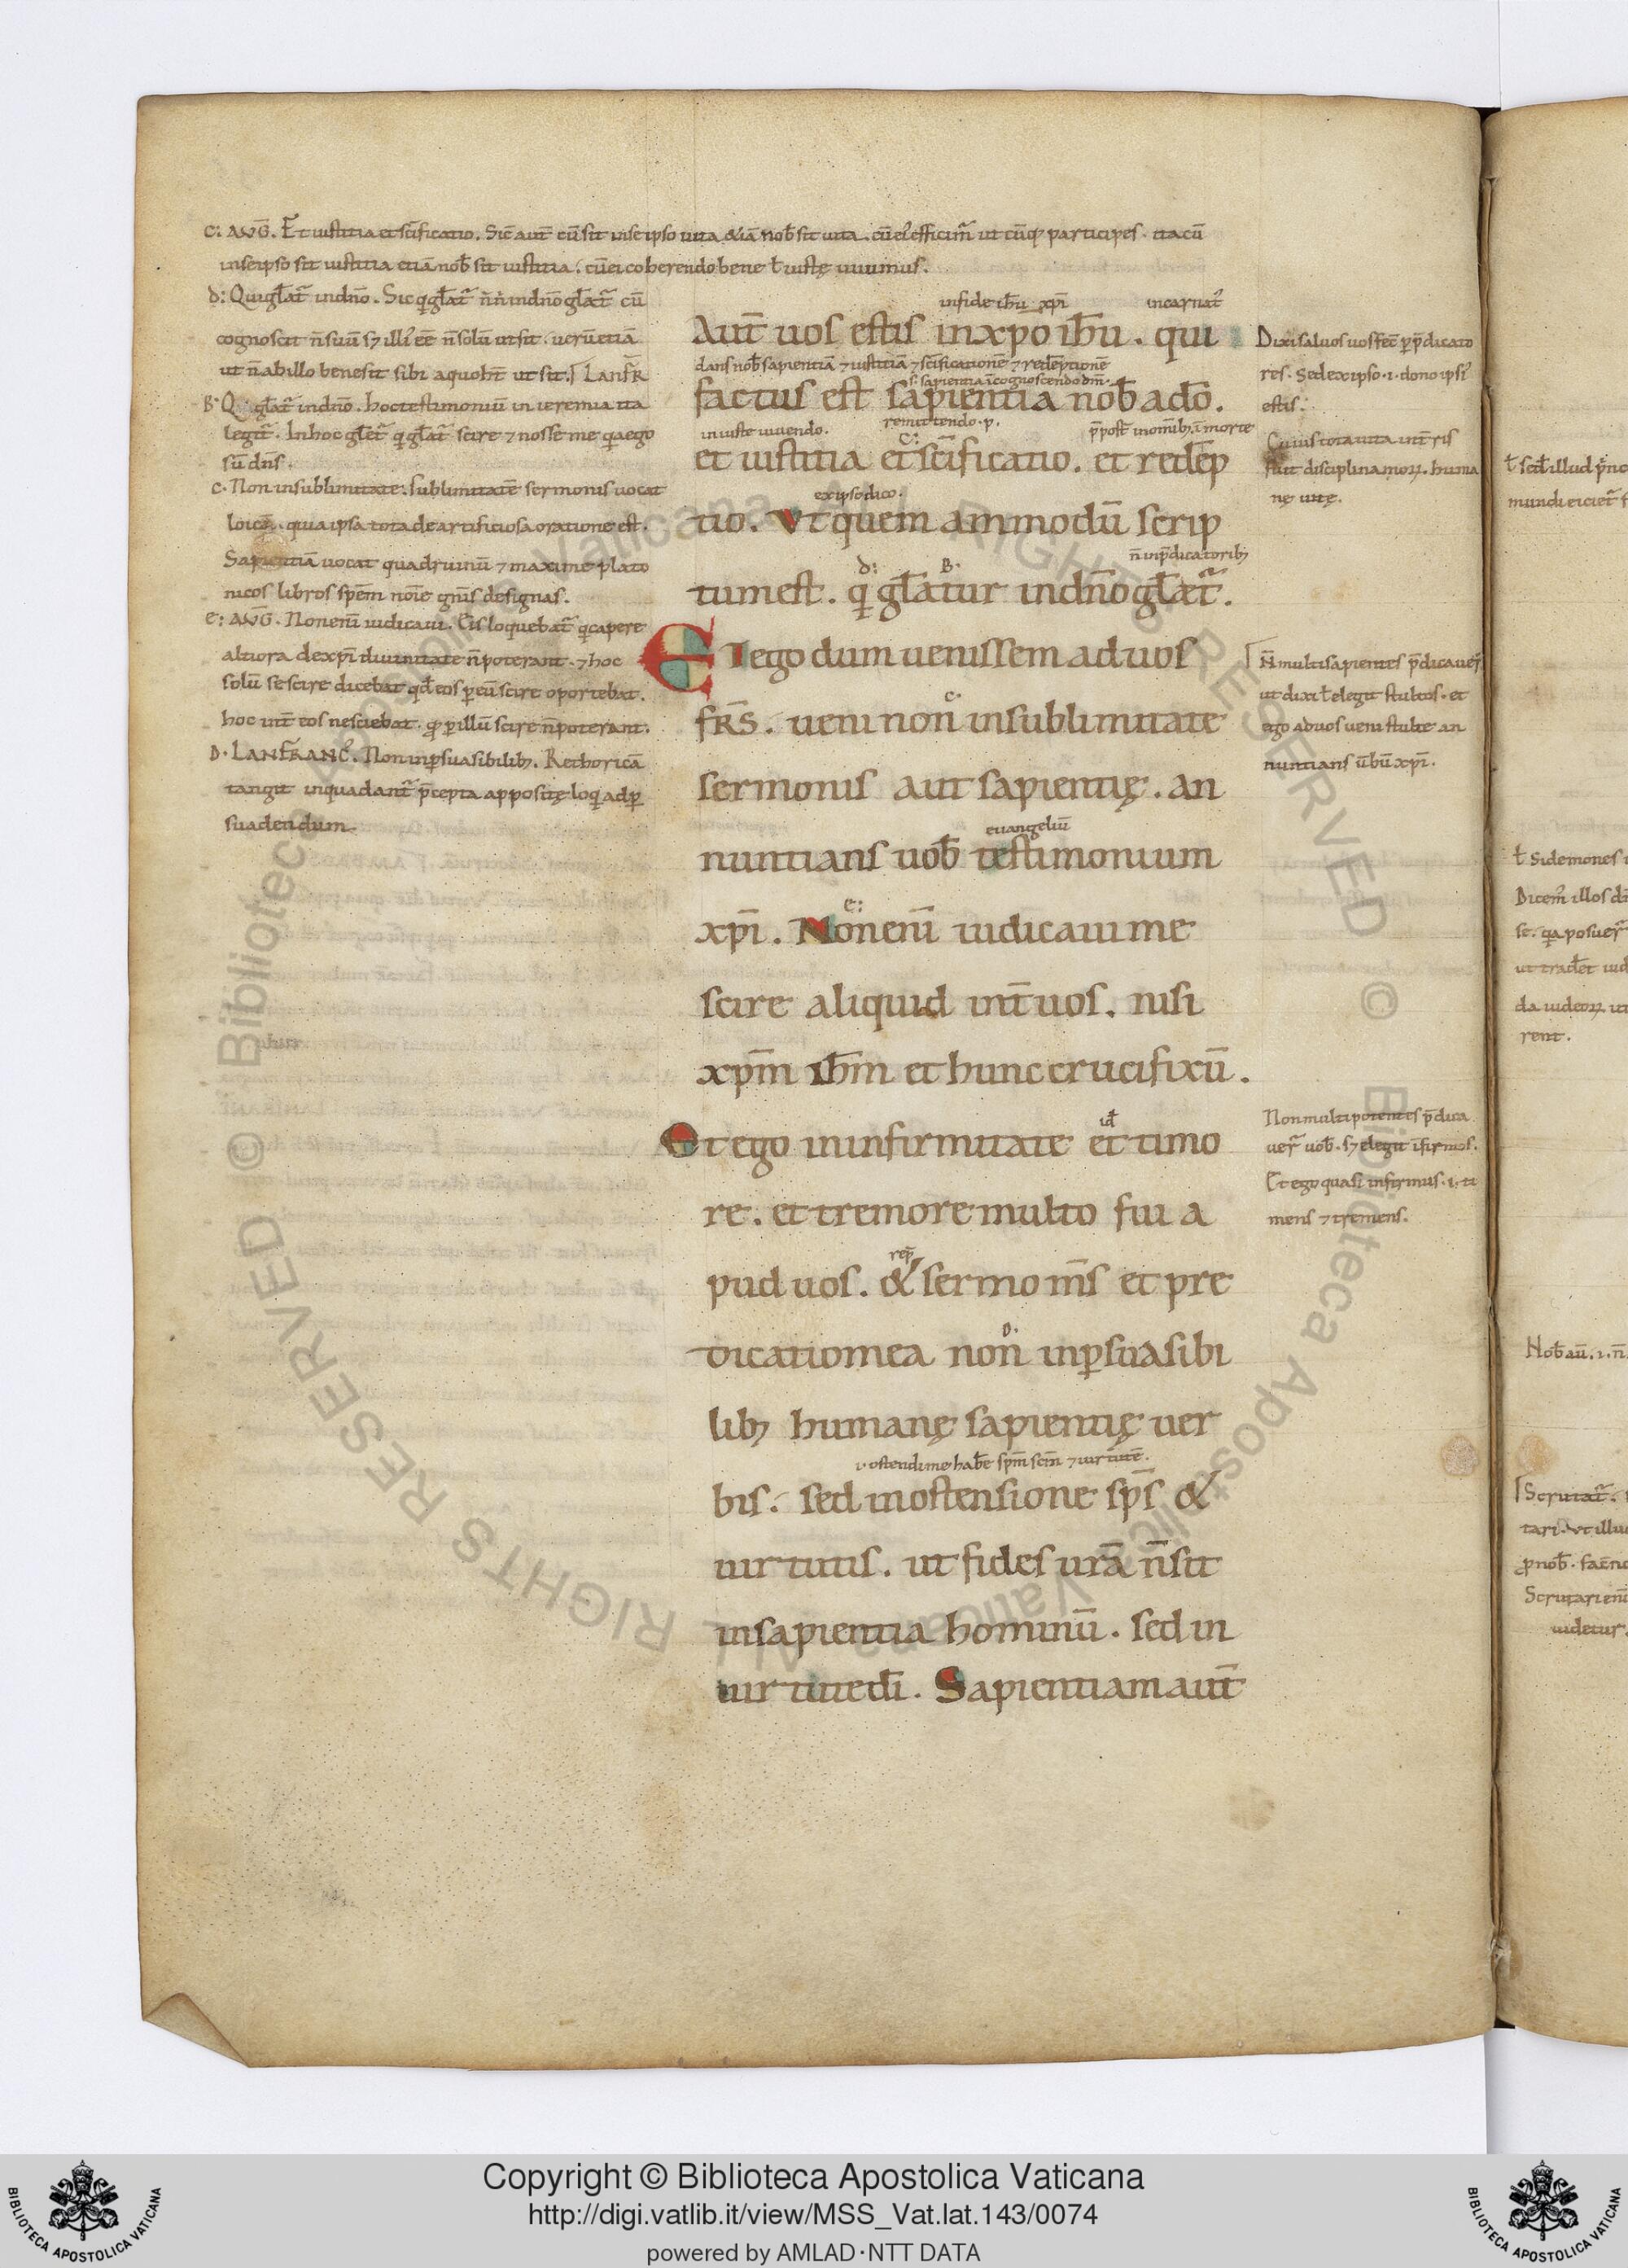 c: AUG̅. Et iustitia et sc̅ificatio. Sic aut̅ cu̅ sit in se ipso uita &ia̅ nob̅ sit uita. cu̅ ei efficim̅ ut cu̅q; participes. ita cu̅
in se ipso sit iustitia etia̅ nob̅ sit iustitia. cu̅ ei coherendo bene ł iustę uiuimus.
d: Qui gl̅at᷑ in dn̅o. Sic q gl̅at᷑ n̅ in dn̅o gl̅at᷑ cu̅
cognoscit n̅ suu̅ s; illi᷑ ee̅ n̅ solu̅ ut sit. ueru̅ etia̅
ut n̅ ab illo bene sit sibi a quo h̅t ut sit. Lanfr̅
B· Q gl̅at᷑ in dn̅o. hoc testimoniu̅ in ieremia ita
legit᷑. In hoc gl̅et᷑ q gl̅at᷑ scire ⁊ nosse me qa ego
su̅ dn̅s.
c· Non in sublimitate. sublimitate̅ sermonis uocat
loica̅. quia ipsa tota de artificiosa oratione est.
Sapientia̅ uocat quadruuiu̅ ⁊ maxime plato
nicos libros spe̅m no̅ie gn̅is designas.
e: AUG̅. Non eni̅ iudicaui. Eis loquebat᷑ q capere
altiora de xp̅i diuinitate n̅ poterant. ⁊ hoc
solu̅ se scire dicebat qd̅ eos p eu̅ scire oportebat.
hoc int̅ eos nesciebat. qd̅ p illu̅ scire n̅ poterant.
D· LANFRANC᷑. Non in psuasibilib;. Rethorica̅
tangit in qua dant᷑ p̅cepta appositę loqi ad p
suadendum.
in fide ih̅u xp̅i incarnat᷑
Aut̅ uos estis in xpo ih̅u. qui
dans nob̅ sapientia̅ ⁊ iustitia̅ ⁊ sc̅ificatione̅ ⁊ rede̅ptione̅
s. sapientia i̅ cognoscendo dm̅.
factus est sapientia nob̅ a do̅.
in iuste uiuendo. remittendo. p.
et iustitia et sc̅ificatio. et rede̅p
ex ipso dico.
tio. Ut quem ammodu̅ scrip
n̅ in p̅dicatorib;
tum est. q gl̅atur in dn̅o gl̅et᷑.
ET ego dum uenissem ad uos
fr̅s. ueni non in sublimitate
sermonis aut sapientię. an
euangeliu̅
nuntians uob̅ testimonium
xp̅i. Non eni̅ iudicaui me
scire aliquid int̅ uos. nisi
xp̅m ih̅m et hunc crucifixu̅.
id̅
Et ego in infirmitate et timo
re. et tremore multo fui a
rep̅
pud uos. & sermo m̅s et pre
dicatio mea non in psuasibi
lib; humanę sapientię uer
i. ostendi me habe̅ sp̅m sc̅m ⁊ uirtute̅.
bis. sed in ostensione sp̅s &
uirtutis. ut fides ur̅a n̅ sit
in sapientia hominu̅. sed in
uirtute di̅. Sapientiam aut̅
Dixi saluos uos fec̅ p p̅dicato
res. Sed ex ipso .i. dono ipsi᷑
estis.
Cuius tota uita in t̅ris
fuit disciplina moꝝ. huma
nę uitę.
N̅ multi sapientes p̅dicauer̅
ut dixi ł elegit stultos. et
ego ad uos ueni stulte an
nuntians u̅bu̅ xp̅i.
Non multi potentes p̅dica
uer̅ uob̅. s; elegit i̅firmos.
Et ego quasi infirmus .i. ti
mens ⁊ tremens.
ł sed illud
mundi eiciet᷑
ł Si demones
Dicem᷑ illos
se. qa posuer̅
ut trad̅et
da iudeoꝝ
rent.
Nob̅ au̅ .i. n̅
Scrutat᷑.
tari. Ut illud
p nob̅.
Scrutari eni̅
uidetur.
Copyright © Biblioteca Apostolica Vaticana
http://digi.vatlib.it/view/MSS_Vat.lat.143/0074
powered by AMLAD·NTT DATA
BIBLIOTECA APOSTOLICA VATICANA
BIBLIOTECA APOSTOLICA VATICANA
© Biblioteca Apostolica Vaticana ALL RIGHTS RESERVED
© Biblioteca Apostolica Vaticana ALL RIGHTS RESERVED